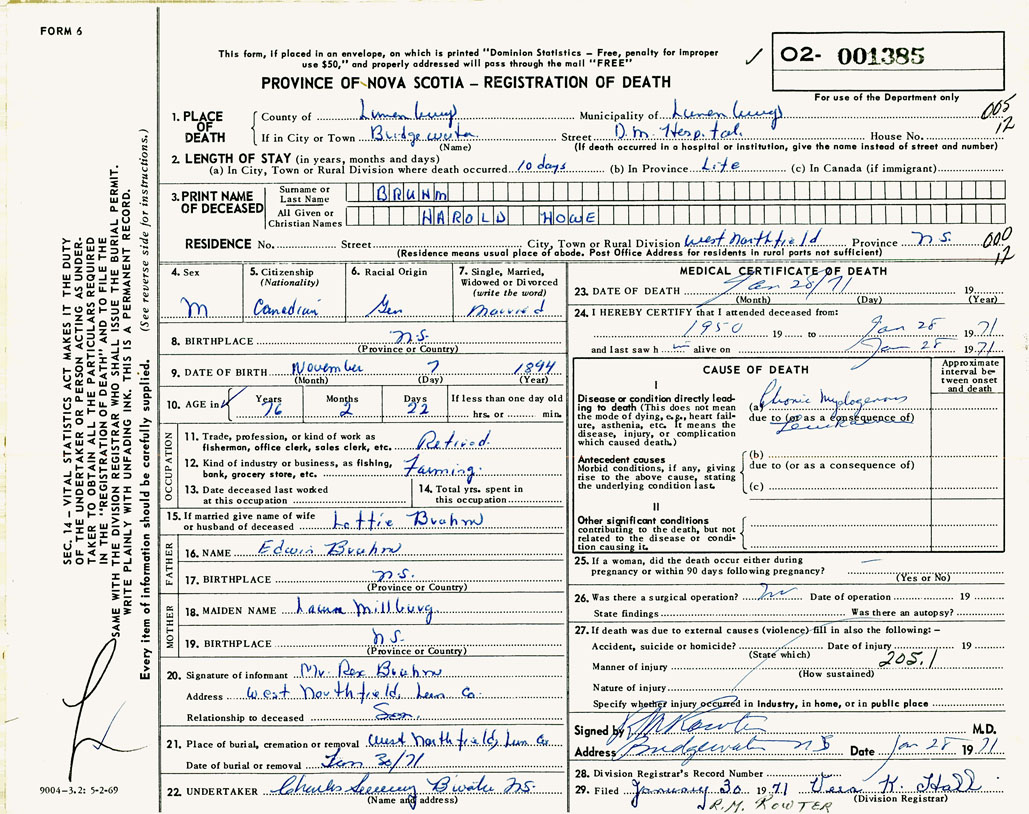 FORM 6
This form, if placed in an envelope, on which is printed "Dominion Statistics – Free, penalty for improper
use $50," and properly addressed will pass through the mail "FREE"
✓ O2- 001385
PROVINCE OF NOVA SCOTIA – REGISTRATION OF DEATH
For use of the Department only
1. PLACE OF DEATH
County of Lunenburg Municipality of Lunenburg
005
12
If in City or Town Bridgewater Street D.M. Hospital House No.
(Name) (If death occurred in a hospital or institution, give the name instead of street and number)
2. LENGTH OF STAY (in years, months and days)
(a) In City, Town or Rural Division where death occurred 10 days (b) In Province Life (c) In Canada (if immigrant)
3. PRINT NAME OF DECEASED
Surname or Last Name BRUHM
All Given or Christian Names HAROLD HOWE
RESIDENCE No. Street City, Town or Rural Division West Northfield Province N.S. 000
12
(Residence means usual place of abode. Post Office Address for residents in rural parts not sufficient)
4. Sex
M
5. Citizenship
(Nationality)
Canadian
6. Racial Origin
Ger
7. Single, Married,
Widowed or Divorced
(write the word)
Married
8. BIRTHPLACE N.S.
(Province or Country)
9. DATE OF BIRTH November 7 1894
(Month) (Day) (Year)
10. AGE in ✓ Years Months Days If less than one day old
76 2 22 hrs. or min.
OCCUPATION
11. Trade, profession, or kind of work as
fisherman, office clerk, sales clerk, etc. Retired.
12. Kind of industry or business, as fishing,
bank, grocery store, etc. Farming.
13. Date deceased last worked
at this occupation
14. Total yrs. spent in
this occupation
15. If married give name of wife
or husband of deceased Lottie Bruhm
FATHER
16. NAME Edwin Bruhm
17. BIRTHPLACE N.S.
(Province or Country)
MOTHER
18. MAIDEN NAME Laura Millburg.
19. BIRTHPLACE N.S.
(Province or Country)
20. Signature of informant Mr. Rex Bruhm
Address West Northfield, Lun Co.
Relationship to deceased Son.
21. Place of burial, cremation or removal West Northfield, Lun Co
Date of burial or removal Jan 30/71
22. UNDERTAKER Charles Sweeny B'water N.S.
(Name and address)
MEDICAL CERTIFICATE OF DEATH
23. DATE OF DEATH Jan 28/71 19
(Month) (Day) (Year)
24. I HEREBY CERTIFY that I attended deceased from:
1950 19 to Jan 28 1971
and last saw h alive on Jan 28 1971
CAUSE OF DEATH
Approximate interval between onset and death
I
Disease or condition directly leading to death (This does not mean the mode of dying, e.g., heart failure, asthenia, etc. It means the disease, injury, or complication which caused death.)
(a) Chronic Myelogenous
due to (or as a consequence of)
Antecedent causes
Morbid conditions, if any, giving rise to the above cause, stating the underlying condition last.
(b)
due to (or as a consequence of)
(c)
II
Other significant conditions
contributing to the death, but not related to the disease or condition causing it.
25. If a woman, did the death occur either during
pregnancy or within 90 days following pregnancy? —
(Yes or No)
26. Was there a surgical operation? no Date of operation 19
State findings Was there an autopsy?
27. If death was due to external causes (violence) fill in also the following: –
Accident, suicide or homicide? Date of injury 19
(State which) 205.1
Manner of injury
(How sustained)
Nature of injury
Specify whether injury occurred in Industry, in home, or in public place
Signed by M Kowter M.D.
Address Bridgewater NS Date Jan 28 1971
28. Division Registrar's Record Number
29. Filed January 30 1971 Vera K. Hall
(Division Registrar)
R.M. KOWTER
SEC. 14 – VITAL STATISTICS ACT MAKES IT THE DUTY
OF THE UNDERTAKER OR PERSON ACTING AS UNDERTAKER TO OBTAIN ALL THE PARTICULARS REQUIRED
IN THE "REGISTRATION OF DEATH" AND TO FILE THE
SAME WITH THE DIVISION REGISTRAR WHO SHALL ISSUE THE BURIAL PERMIT.
WRITE PLAINLY WITH UNFADING INK. THIS IS A PERMANENT RECORD.
Every item of information should be carefully supplied. (See reverse side for instructions.)
9004-3.2: 5-2-69